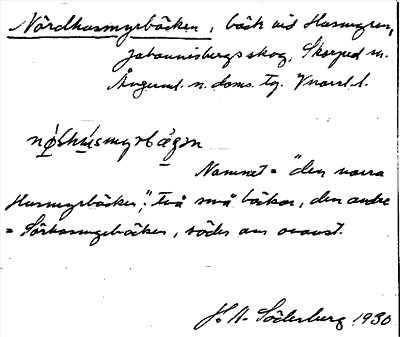 Nördhusmyrbäcken, bäck vid Husmyren,
Johannisbergs skog, Skorped sn.
Ångerml. n. doms. tg. Vnorrl. l.
Namnet = "den norra
Husmyrbäcken"; två små bäckar, den andre
= Sörhusmyrbäcken, söder om ovanst.
H. A. Söderberg 1930